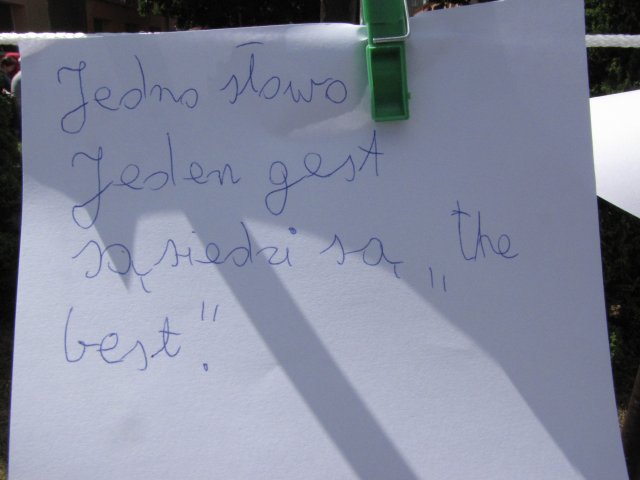 Jedno słowo
Jeden gest
sąsiedzi są „the
best".